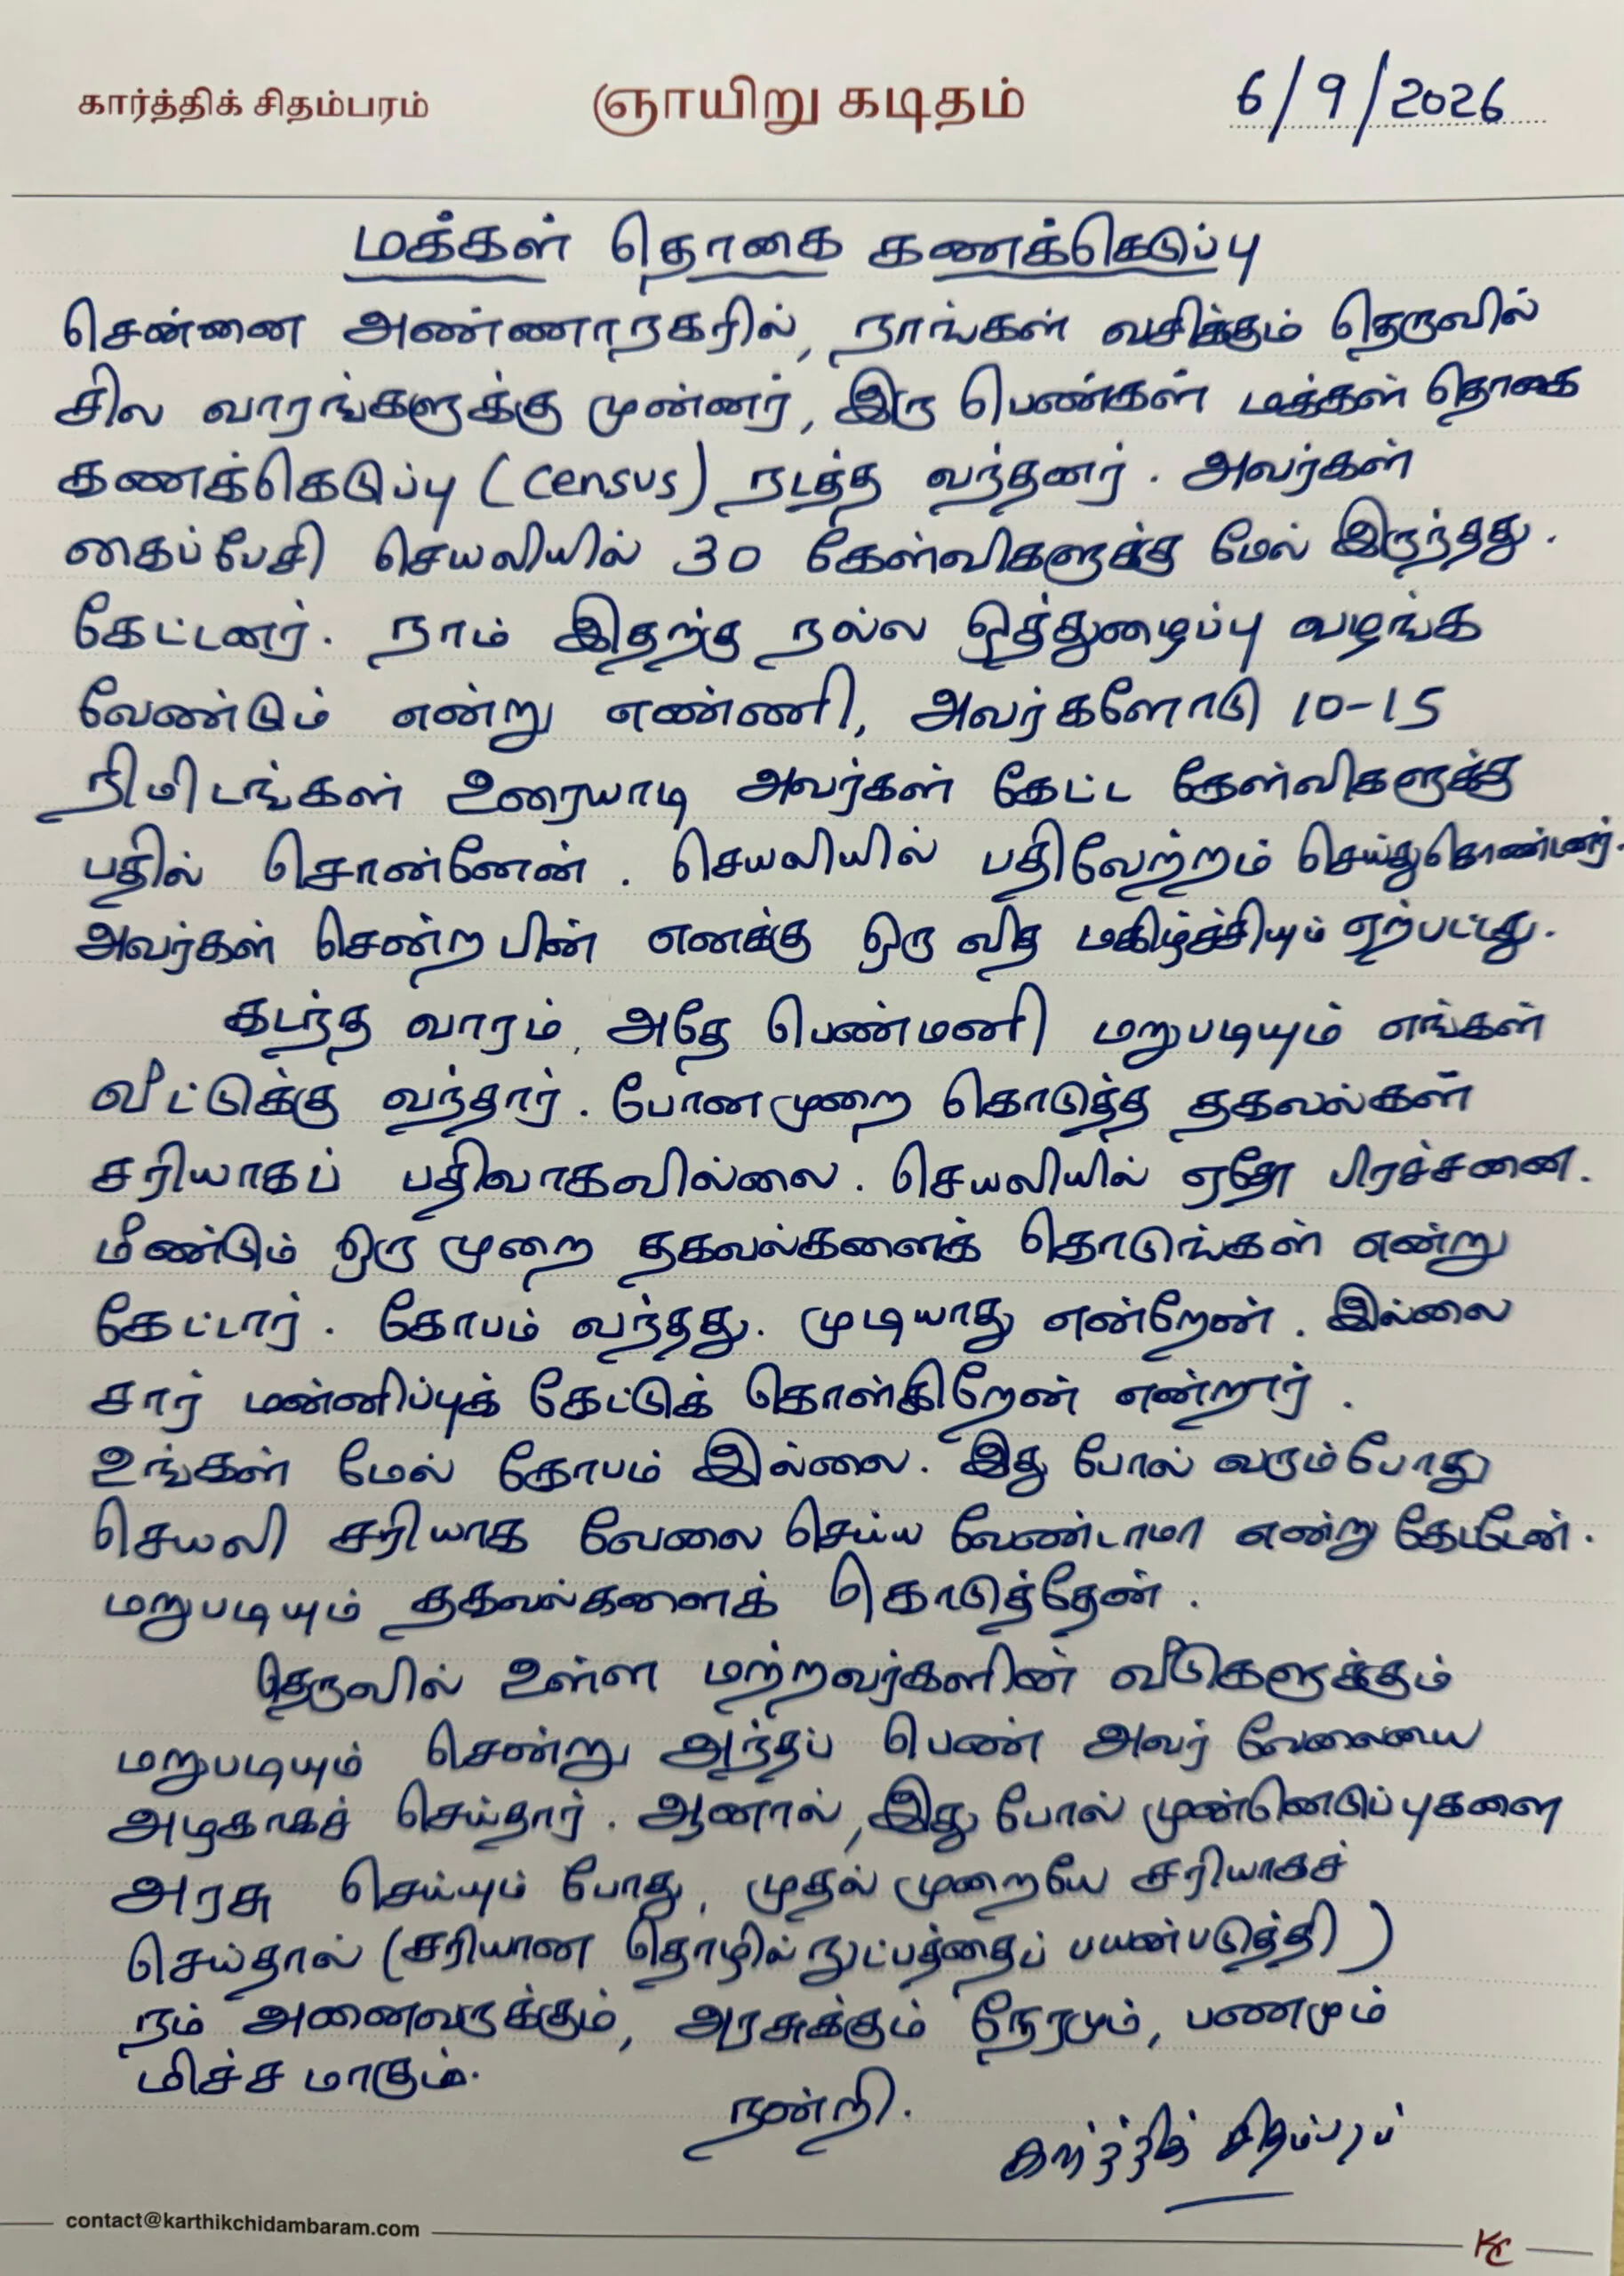 கார்த்திக் சிதம்பரம்
ஞாயிறு கடிதம்
6/9/2026
மக்கள் தொகை கணக்கெடுப்பு
சென்னை அண்ணாநகரில், நாங்கள் வசிக்கும் தெருவில்
சில வாரங்களுக்கு முன்னர், இரு பெண்கள் மக்கள் தொகை
கணக்கெடுப்பு (census) நடத்த வந்தனர். அவர்கள்
கைப்பேசி செயலியில் 30 கேள்விகளுக்கு மேல் இருந்தது.
கேட்டனர். நாம் இதற்கு நல்ல ஒத்துழைப்பு வழங்க
வேண்டும் என்று எண்ணி, அவர்களோடு 10-15
நிமிடங்கள் உரையாடி அவர்கள் கேட்ட கேள்விகளுக்கு
பதில் சொன்னேன். செயலியில் பதிவேற்றம் செய்துகொண்டனர்.
அவர்கள் சென்ற பின் எனக்கு ஒரு வித மகிழ்ச்சியும் ஏற்பட்டது.
கடந்த வாரம், அதே பெண்மணி மறுபடியும் எங்கள்
வீட்டுக்கு வந்தார். போனமுறை கொடுத்த தகவல்கள்
சரியாகப் பதிவாகவில்லை. செயலியில் ஏதோ பிரச்சனை.
மீண்டும் ஒரு முறை தகவல்களைக் கொடுங்கள் என்று
கேட்டார். கோபம் வந்தது. முடியாது என்றேன். இல்லை
சார் மன்னிப்புக் கேட்டுக் கொள்கிறேன் என்றார்.
உங்கள் மேல் கோபம் இல்லை. இது போல் வரும்போது
செயலி சரியாக வேலை செய்ய வேண்டாமா என்று கேட்டேன்.
மறுபடியும் தகவல்களைக் கொடுத்தேன்.
தெருவில் உள்ள மற்றவர்களின் வீடுகளுக்கும்
மறுபடியும் சென்று அந்தப் பெண் அவர் வேலையை
அழகாகச் செய்தார். ஆனால், இது போல் முன்னெடுப்புகளை
அரசு செய்யும் போது, முதல் முறையே சரியாகச்
செய்தால் (சரியான தொழில் நுட்பத்தைப் பயன்படுத்தி)
நம் அனைவருக்கும், அரசுக்கும் நேரமும், பணமும்
மிச்ச மாகும்.
நன்றி.
கார்த்திக் சிதம்பரம்
contact@karthikchidambaram.com
KC